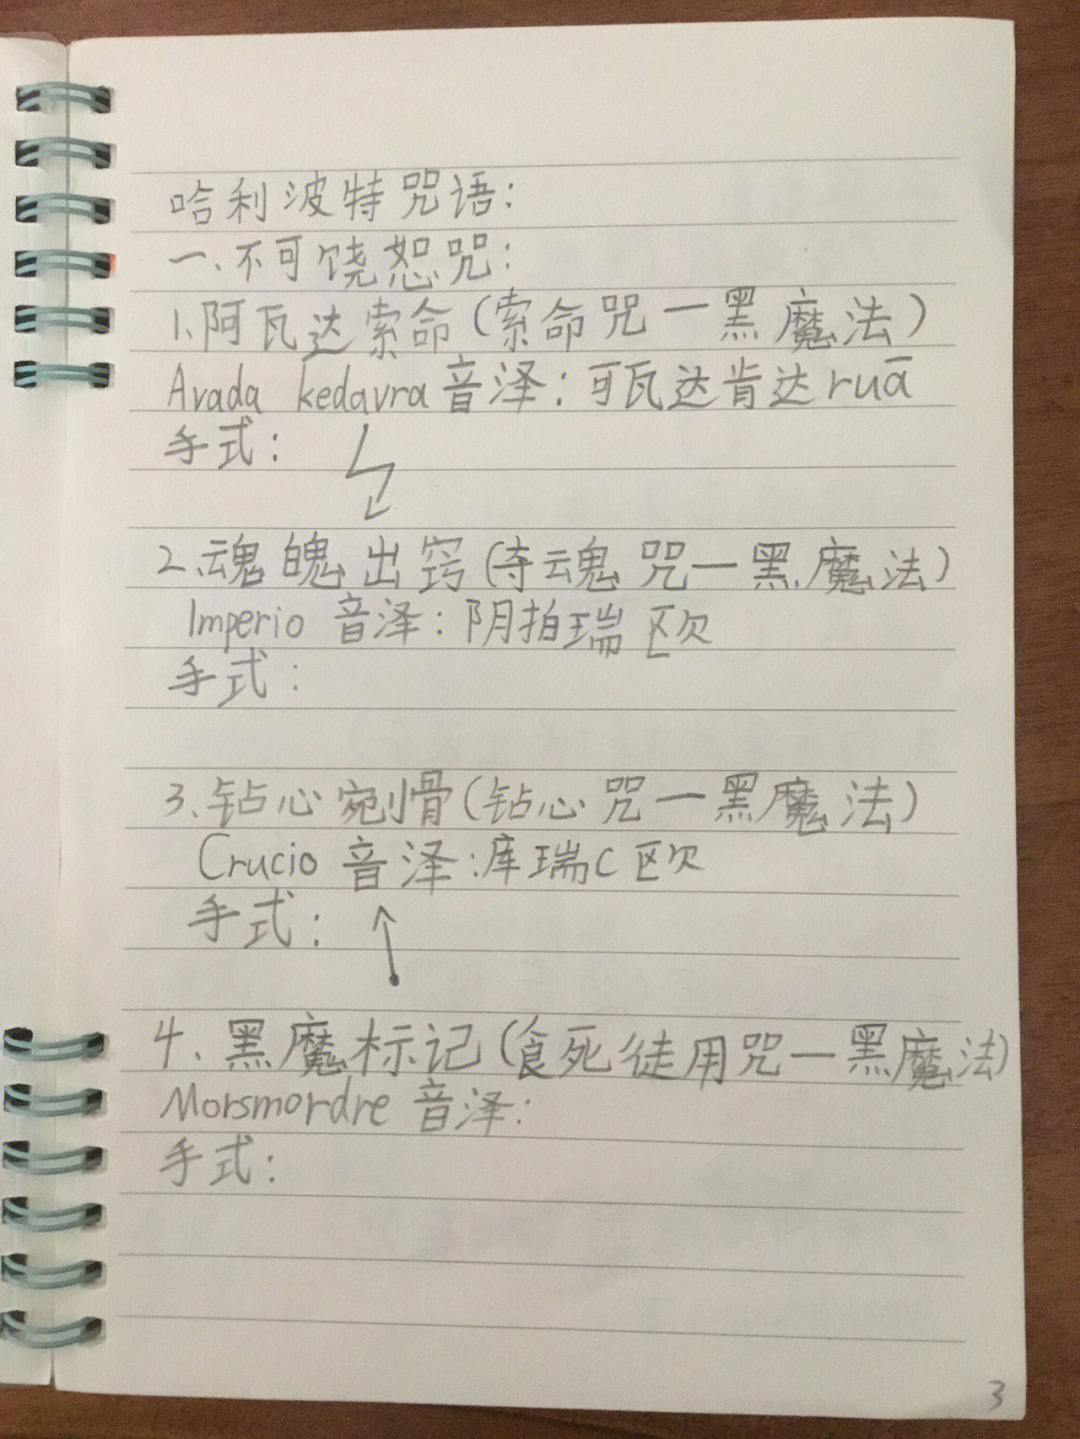 哈利波特咒语:
一、不可饶恕咒:
1、阿瓦达索命(索命咒一黑魔法)
Avada kedavra 音泽:可瓦达肯达ruā
手式:
2、魂魄出窍(夺魂咒一黑魔法)
Imperio 音泽:阴拍瑞欧
手式:
3、钻心剜骨(钻心咒一黑魔法)
Crucio 音泽:库瑞C欧
手式:
4、黑魔标记(食死徒用咒一黑魔法)
Morsmordre 音泽:
手式:
3